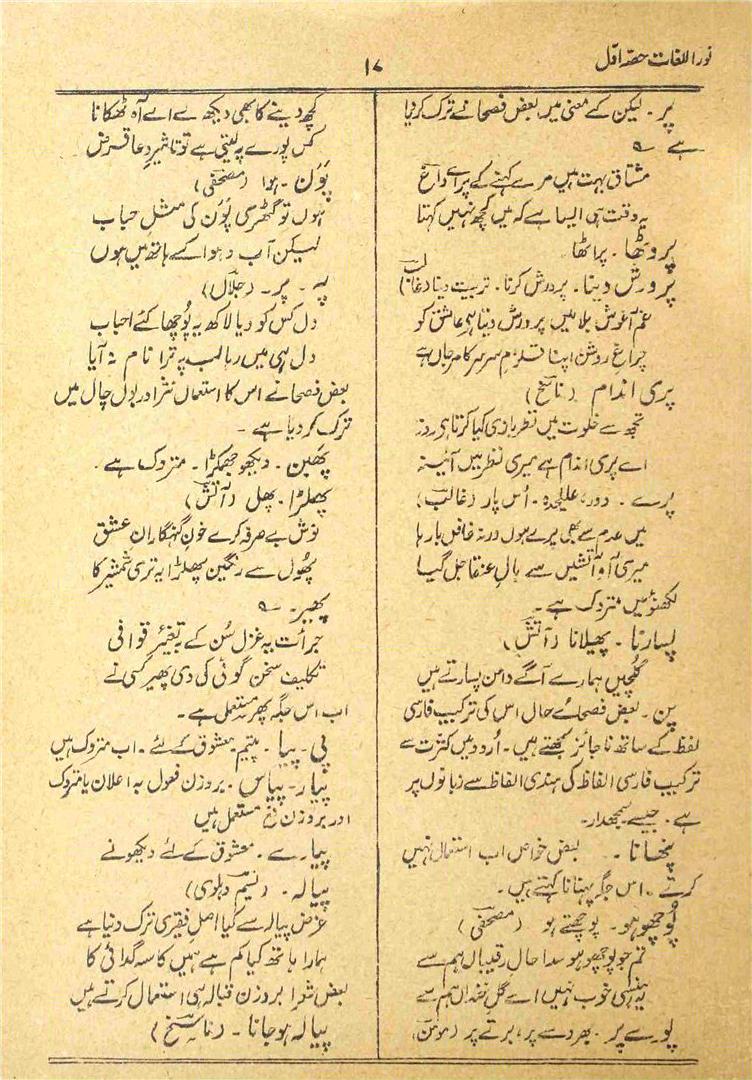 نور اللغات حصہ اوّل
۱۷
پر۔ لیکن کے معنی میں بعض فصحا نے ترک کردیا
ہے ؎
مشتاق بہت ہیں مرے کہنے کے پر اے داغؔ
یہ وقت ہی ایسا ہے کہ میں کچھ نہیں کہتا
پروٹھا۔ پراٹھا
پرورش دینا۔ پرورش کرنا۔ تربیت دینا
غم آغوش بلا میں پرورش دیتا ہی عاشق کو
چراغ روشن اپنا قلزم صرصر کا مرجاں ہے
پری اندام (ناسخؔ)
تجھ سے خلوت میں نظر بازی کیا کرتا ہی روز
اے پری اندام ہے میری نظر میں آئینہ
پرے۔ دور، علیٰحدہ۔ اُس پار (غالبؔ)
میں عدم سے بھی پرے ہوں ورنہ غافل بارہا
میری آہِ آتشیں سے بالِ عنقا جل گیا
لکھنؤ میں متروک ہے۔
پسارنا۔ پھیلانا (آتشؔ)
گلچیں ہمارے آگے دامن پسارتے ہیں
پن۔ بعض فصحائے حال اس کی ترکیب فارسی
لفظ کے ساتھ ناجائز سمجھتے ہیں۔ اُردو میں کثرت سے
ترکیب فارسی الفاظ کی ہندی الفاظ سے زبانوں پر
ہے۔ جیسے سمجھدار۔
پنھانا۔ بعض خواص اب استعمال نہیں
کرتے۔ اس جگہ پہنانا کہتے ہیں۔
پُوچھو ہو۔ پوچھتے ہو (مصحفیؔ)
تم جو پوچھو ہو سدا حال رقیباں ہم سے
یہ ہنسی خوب نہیں اے گلِ خنداں ہم سے
پورے پر۔ بھروسے پر، برتے پر (مومنؔ)
کچھ دینے کا بھی دیکھ سے اے آہ ٹھکانا
کس پورے پہ لیتی ہے تو تاثیر دعا قرض
پَوَن۔ ہوا (مصحفیؔ)
ہوں تو گٹھری پَوَن کی مثلِ حباب
لیکن آب و ہوا کے ہاتھ میں ہوں
پہ۔ پر۔ (جلالؔ)
دل کس کو دیا لاکھ یہ پُوچھا کئے احباب
دل ہی میں رہا لب پہ ترا نام نہ آیا
بعض فصحا نے اس کا استعمال نثر اور بول چال میں
ترک کردیا ہے۔
پھبن۔ دیکھو جھمکڑا۔ متروک ہے۔
پھلڑا۔ پھل (آتشؔ)
نوش بے صرفہ کرے خونِ گنہگاران عشق
پھُول سے رنگین پھلڑا یہ تری شمشیر کا
پھیر۔ ؎
جرأت یہ غزل سُن کے بہ تغیّر قوافی
تکلیف سخن گوئی کی دی پھیر کسی نے
اب اس جگہ پھر مستعمل ہے۔
پی۔ پیا۔ پیتم۔ معشوق کے لئے۔ اب متروک ہیں
پیار۔ پیاس۔ بروزن فعول بہ اعلان یا متروک
اور بروزن فع مستعمل ہیں
پیارے۔ معشوق کے لئے دیکھو نے
پیالہ۔ (نسیمؔ دہلوی)
غرض پیالہ سے کیا اصل فقیری ترک دنیا ہے
ہمارا ہاتھ کیا کم ہے ہمیں کاسہ گدائی کا
بعض شعرا بروزن قبالہ ہی استعمال کرتے ہیں
پیالہ ہو جانا۔ (ناسخؔ)